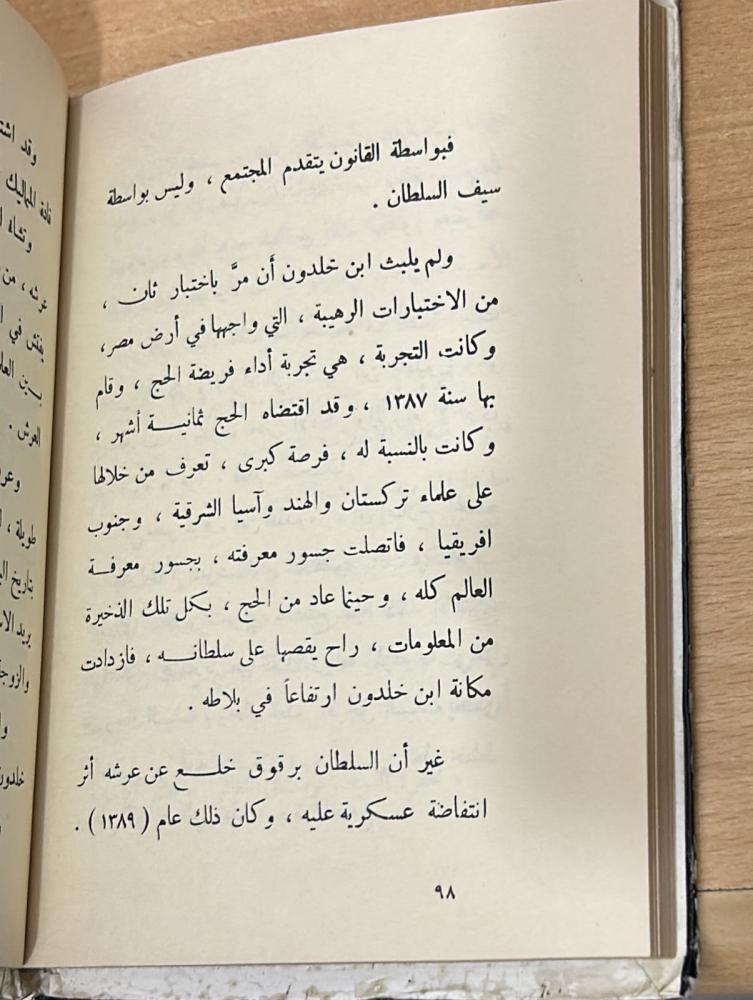 فبواسطة القانون يتقدم المجتمع ، وليس بواسطة
سيف السلطان .
ولم يلبث ابن خلدون أن مرَّ باختبار ثان ،
من الاختبارات الرهيبة ، التي واجهها في أرض مصر،
وكانت التجربة ، هي تجربة أداء فريضة الحج ، وقام
بها سنة ١٣٨٧ ، وقد اقتضاه الحج ثمانيـــة أشهر ،
وكانت بالنسبة له ، فرصة كبرى ، تعرف من خلالها
على علماء تركستان والهند وآسيا الشرقية ، وجنوب
افريقيا ، فاتصلت جسور معرفته ، بجسور معرفـــة
العالم كله ، وحينما عاد من الحج ، بكل تلك الذخيرة
من المعلومات ، راح يقصها على سلطانـــه ، فازدادت
مكانة ابن خلدون ارتفاعاً في بلاطه .
غير أن السلطان برقوق خلـــع عن عرشه أثر
انتفاضة عسكرية عليه ، وكان ذلك عام ( ١٣٨٩ ) .
٩٨
وقد
قادة المماليك
عرشه ، من
العرش .
طويلة ،